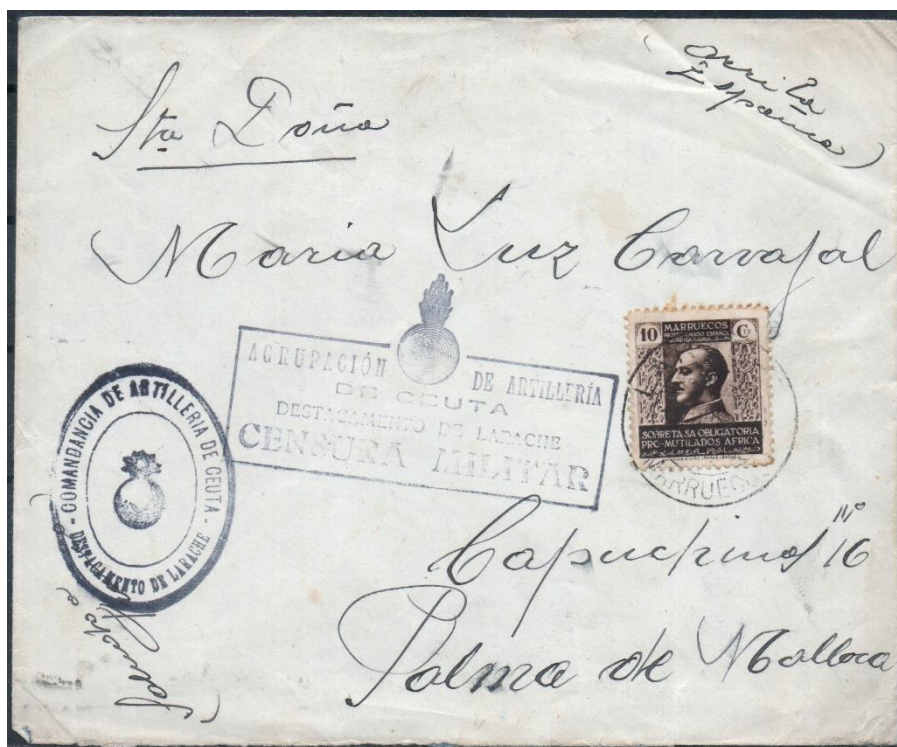 Arriba
España
Sta Doña
Maria Luz Carvajal
AGRUPACIÓN DE ARTILLERÍA
DE CEUTA
DESTACAMENTO DE LARACHE
CENSURA MILITAR
10 MARRUECOS Cs
PROTECTORADO ESPAÑOL
SOBRETASA OBLIGATORIA
PRO-MUTILADOS AFRICA
MARRUECOS
- COMANDANCIA DE ARTILLERIA DE CEUTA -
DESTACAMENTO DE LARACHE
Capuchinos nº 16
Palma de Mallorca